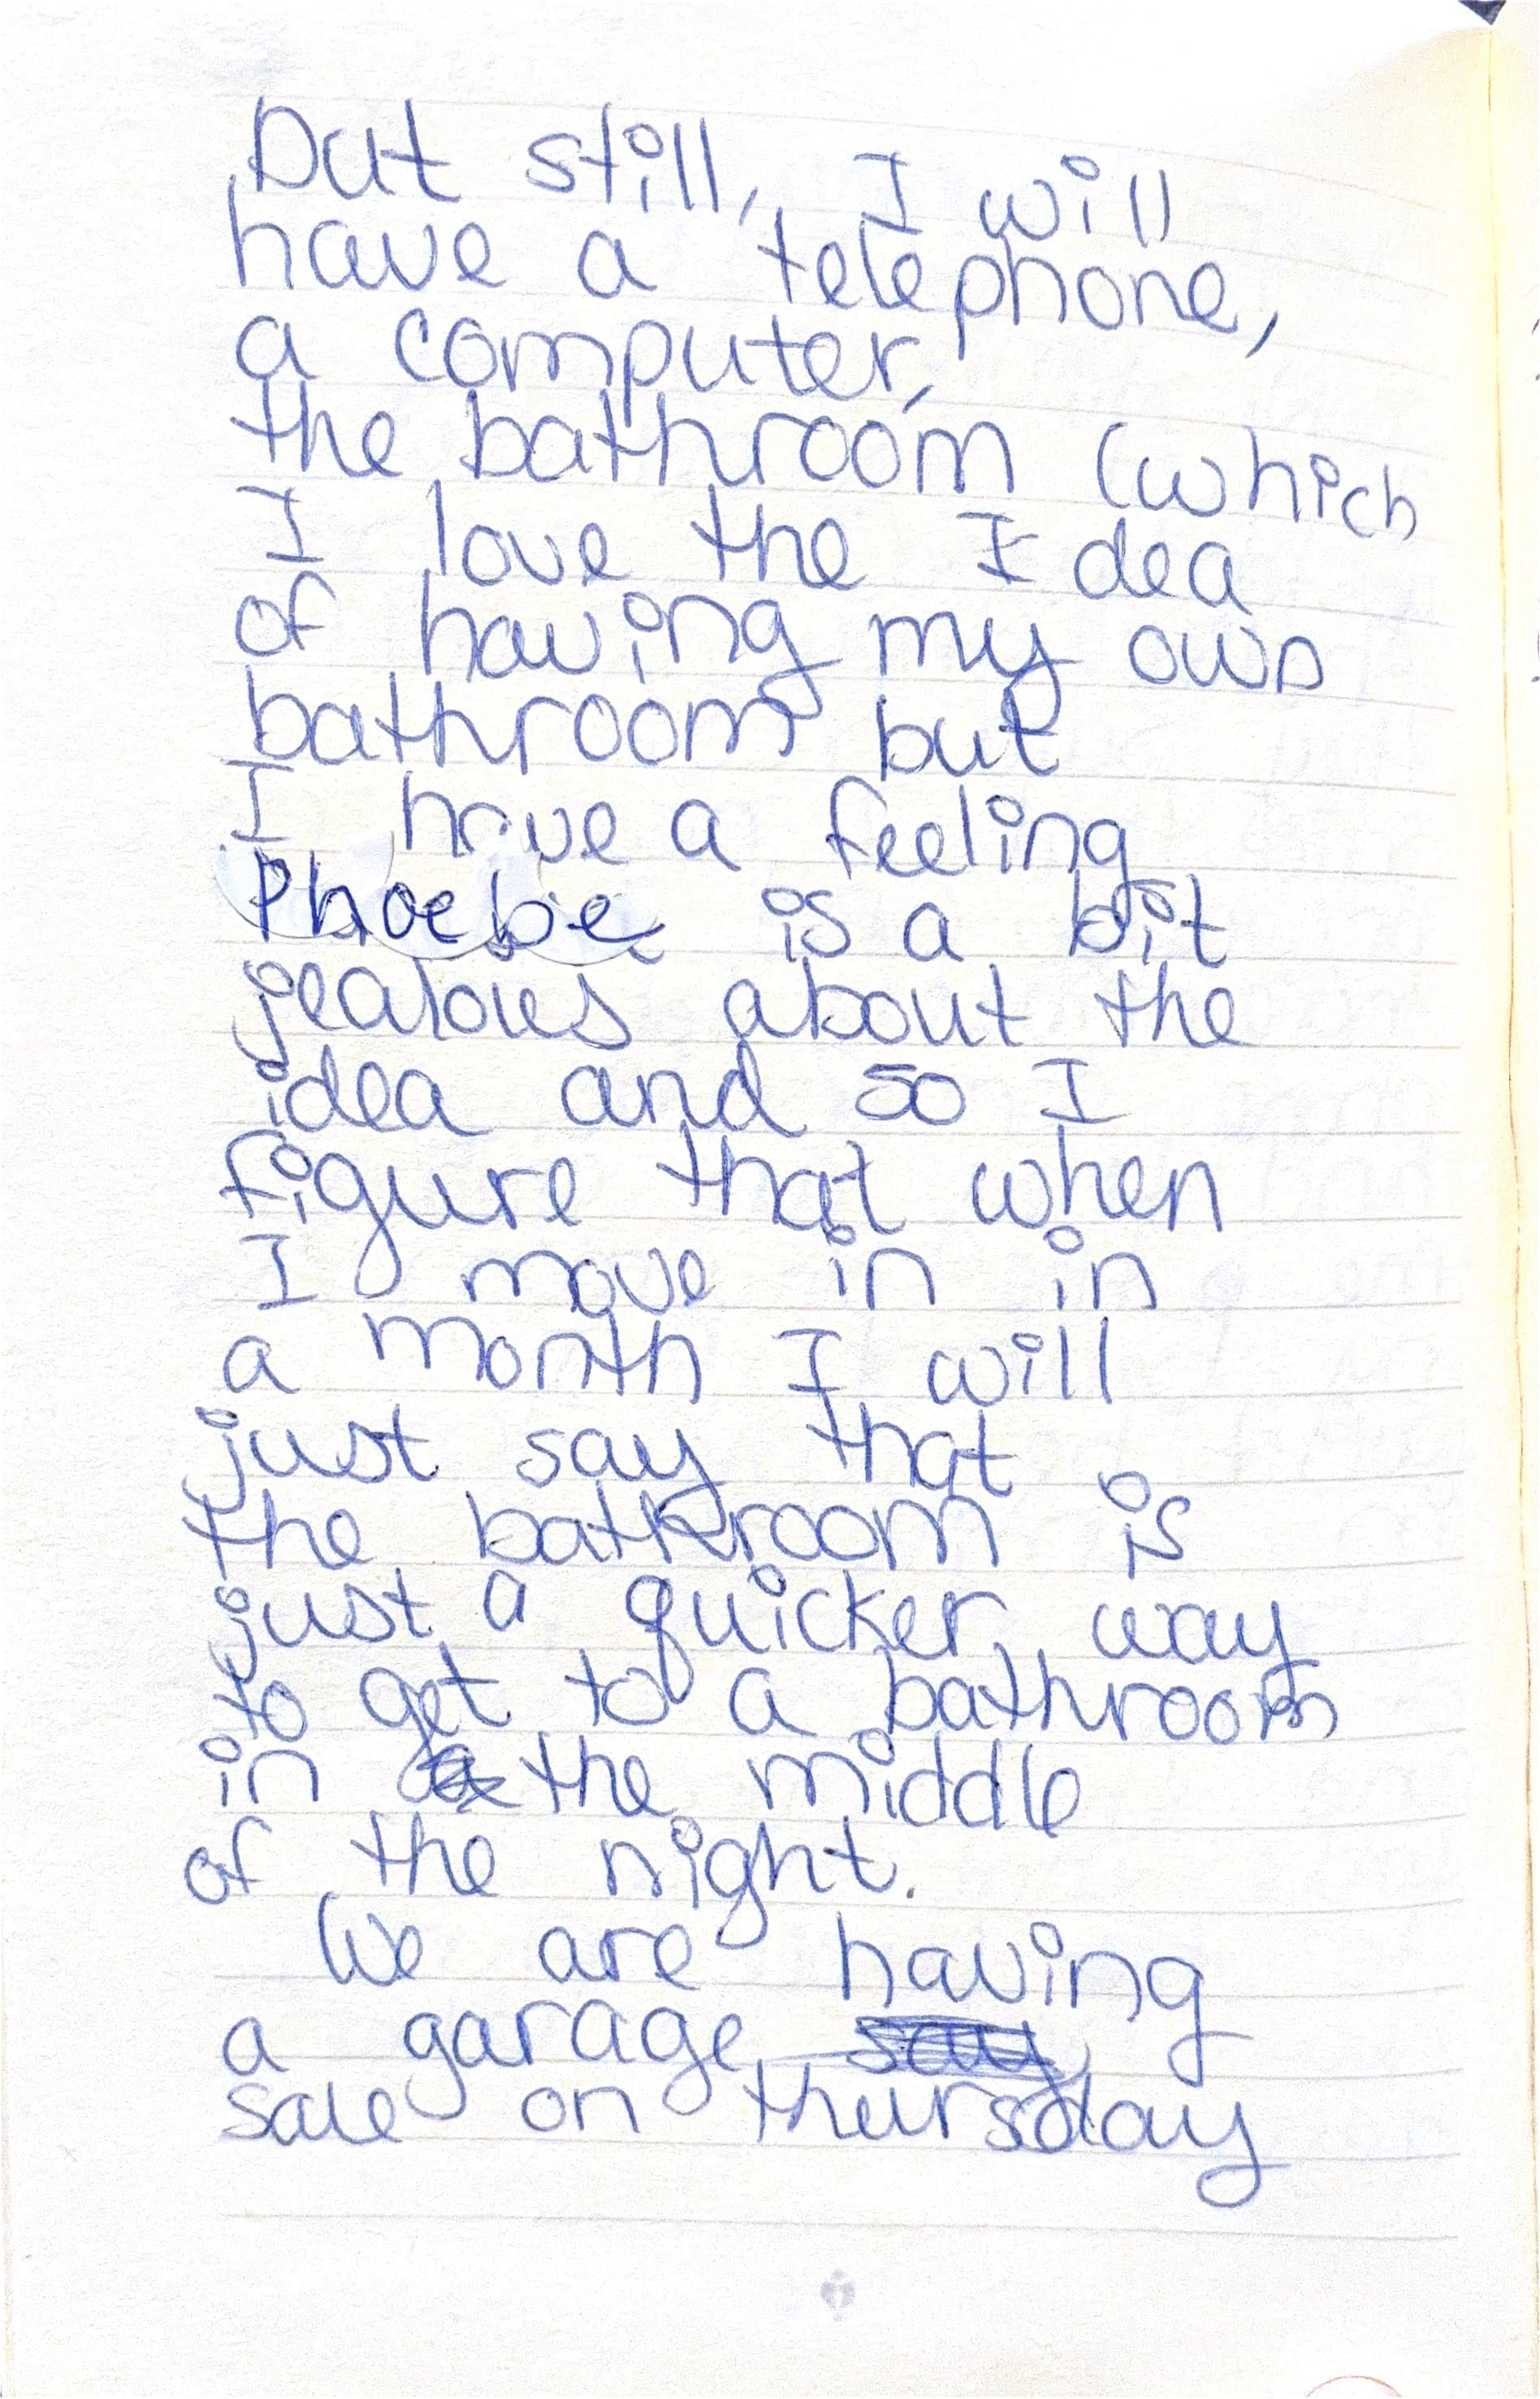 But still, I will
have a telephone,
a computer,
the bathroom (which
I love the Idea
of having my own
bathroom but
I have a feeling
Phoebe is a bit
jealous about the
idea and so I
figure that when
I move in in
a month I will
just say that
the bathroom is
just a quicker way
to get to a bathroom
in the middle
of the night.
We are having
a garage say
sale on thursday